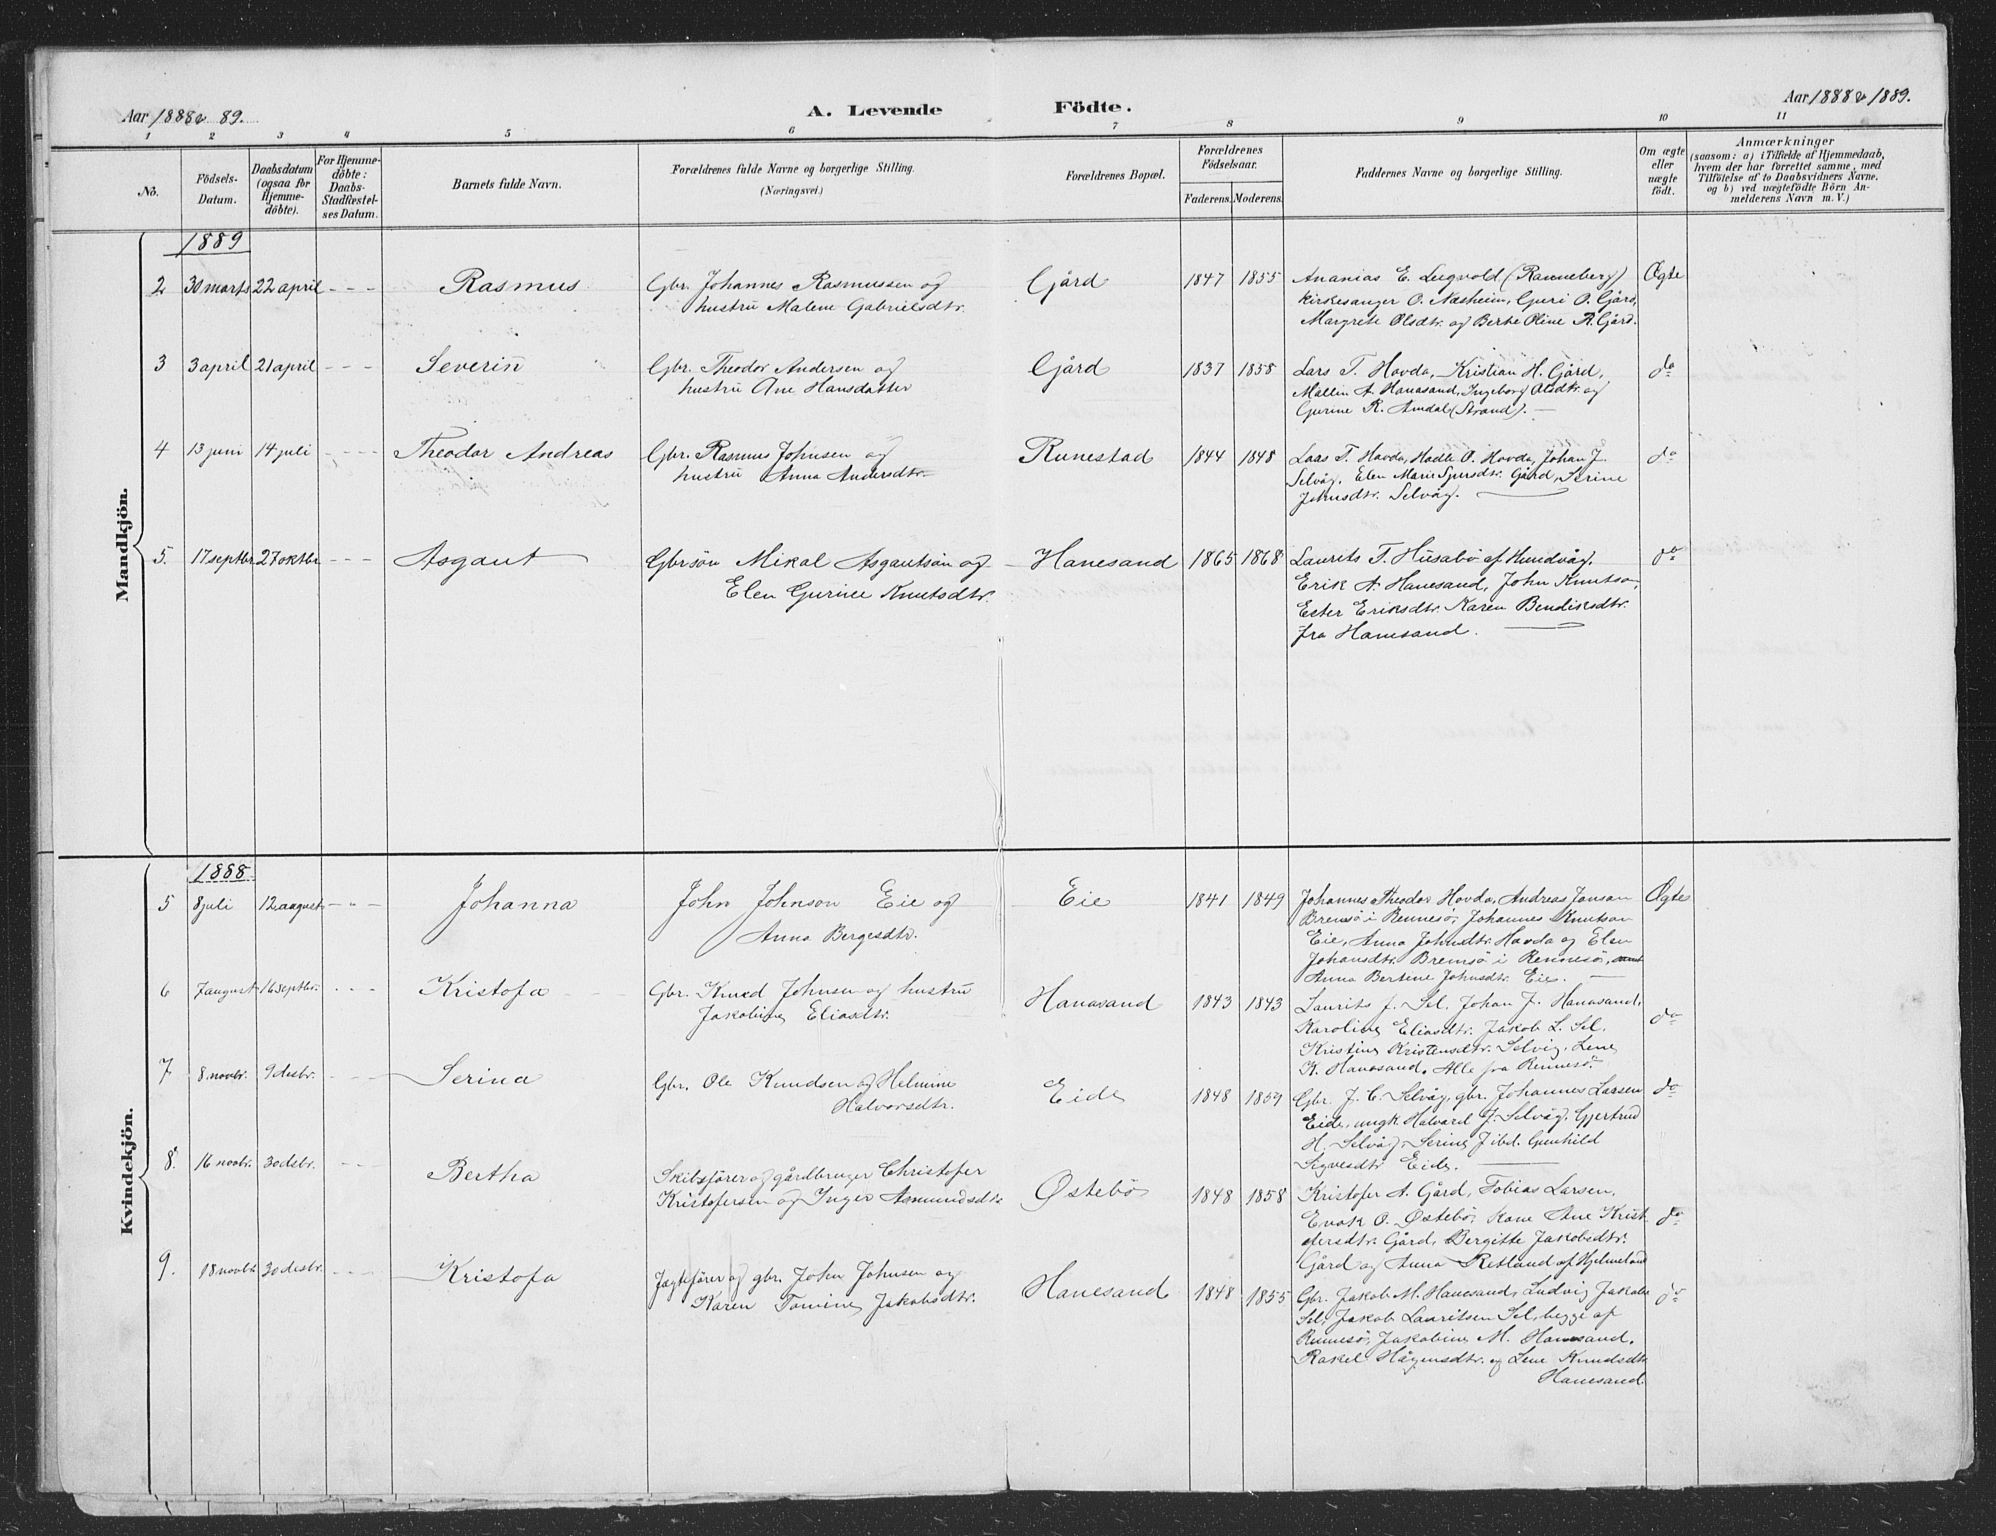 Aar 1888 & 89.
A. Levende Födte.
Aar 1888 & 1889.
1 2 3 4 5 6 7 8 9 10 11
No.
Födsels-
Datum.
Daabsdatum
(ogsaa for
Hjemme-
döbte).
For Hjemme-
döbte:
Daabs-
Stadfæstel-
ses Datum.
Barnets fulde Navn.
Forældrenes fulde Navne og borgerlige Stilling.
(Næringsvei.)
Forældrenes Bopæl.
Forældrenes
Födselsaar.
Faderens. Moderens.
Faddernes Navne og borgerlige Stilling.
Om ægte
eller
uægte
födt.
Anmærkninger
(saasom: a) i Tilfælde af Hjemmedaab,
hvem der har forrettet samme, med
Tilföielse af to Daabsvidners Navne,
og b) ved uægtefödte Börn An-
melderens Navn m. V.)
Mandkjön.
1889
2 30 marts 22 april - - - Rasmus
Gbr. Johannes Rasmussen og
hustru Malene Gabrielsdtr.
Gård 1847 1855
Ananias E. (Ranneberg)
kirkesanger O. Næsheim, Guri O. Gård,
Margrete Olsdtr. og Berte Oline R. Gård.
Ægte
3 3 april 21 april - - - Severin
Gbr. Theodor Andersen og
hustru Ane Hansdatter
Gård 1837 1858
Lars T. Hovda, Kristian H. Gård,
Mallin A. Hanasand, Ingeborg Olsdtr. og
Gurine R. Amdal (Strand). —
do
4 13 juni 14 juli - - - Theodor Andreas
Gbr. Rasmus Johnsen og
hustru Anna Andersdtr.
Runestad 1844 1848
Laas T. Hovda, Hadle O. Hovda, Johan J.
Selvåg, Elen Marie Sjursdtr. Gård, Serine
Johnsdtr. Selvåg.
do
5. 17 septbr 27 oktbr - - - Asgaut
Gbrsön Mikal Asgautsön og
Elen Gurine Knutsdtr.
Hanesand 1865 1868
Laurits T. Husabö af Hundvåg.
Erik A. Hanesand, John Knutson,
Ester Eriksdtr. Karen Bendiksdtr.
fra Hanesand.
do
Kvindekjön.
1888
5 8 juli 12 august - - - Johanna
John Johnson Eie og
Anna Bergesdtr.
Eie 1841 1849
Johannes Theodor Hovda, Andreas Jonsan
Bremsö i Rennesö, Johannes Knutson
Eie, Anna Johnsdtr. Hovda og Elen
Johansdtr. Bremsö i Rennesö, samt
Anna Bertine Johnsdtr. Eie. —
Ægte
6 7 august 16 septbr. - - - Kristofa
Gbr. Knud Johnsen og hustru
Jakobine Eliasdtr.
Hanasand 1843 1843
Laurits J. Sel, Johan J. Hanasand,
Karoline Eliasdtr. Jakob L. Sel,
Kristine Kristensdtr. Selvig, Lene
K. Hanasand. Alle fra Rennesö.
do
7 8 novbr. 9 desbr. - - - Serina
Gbr. Ole Knudsen og Helmine
Halvorsdtr.
Eide 1848 1859
Gbr. J. C. Selvåg, gbr. Johannes Larsen
Eide, ungk Halvard J. Selvåg, Gjertrud
H. Selvåg, Serine J ibd. Gunhild
Sigvesdtr Eide.
do
8. 16 novbr. 30 dsbr. - - - Bertha
Skibsförer og gårdbruger Christofer
Kristofersen og Inger Asmundsdtr
Østebö 1848 1858
Kristofer A. Gård, Tobias Larsen,
Enok O. Østebö, kone Ane Krist-
ofersdtr. Gård, Bergitte Jakobsdtr.
Gård og Anna Retland af Hjelmeland
do
9. 18 novbr. 30 desbr. - - - Kristofa
Jagtefören og gbr. John Johnsen og
Karen Tomine Jakobsdtr.
Hanesand 1848 1855
Gbr. Jakob M. Hanesand, Ludvig Jakobs.
Sel, Jakob Lauritsen Sel, begge af
Rennesö, Jakobine M. Hanesand,
Rakel Hågensdtr. og Lene Knudsdtr
Hanesand.
do